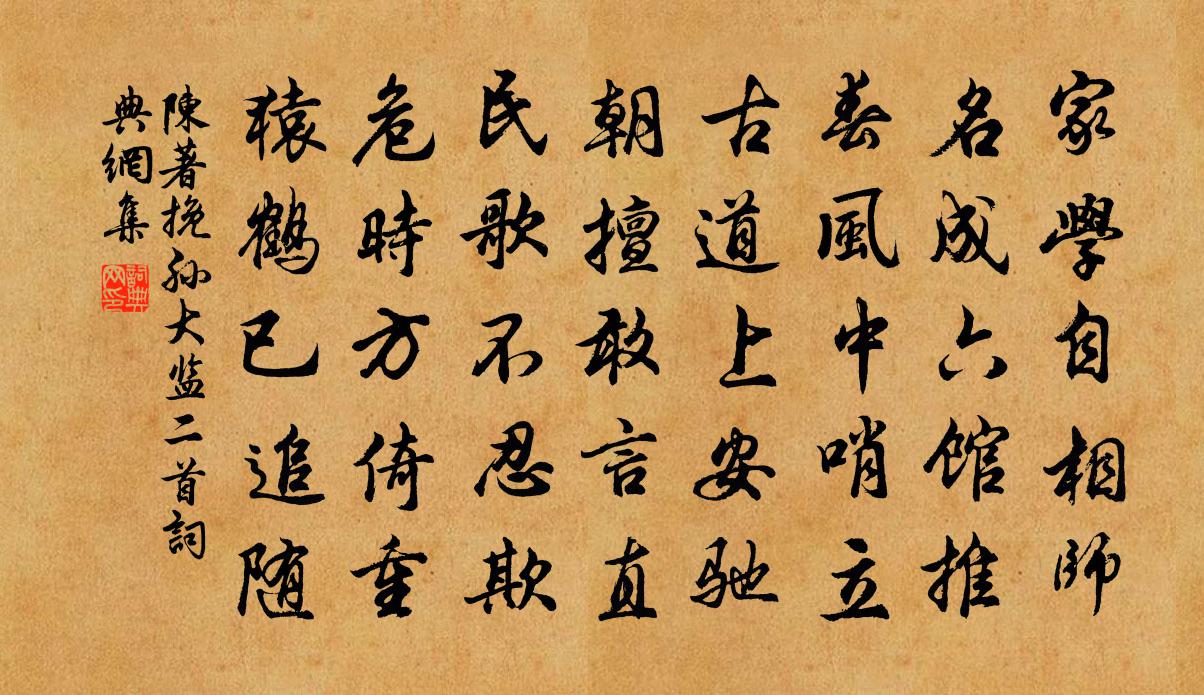 家學自相師
名成六館推
春風中哨立
古道上安馳
朝擅敢言直
民歌不忍欺
危時方倚重
猿鶴已追随
陳著挽孫大监二首詞
典網集
詞典网印